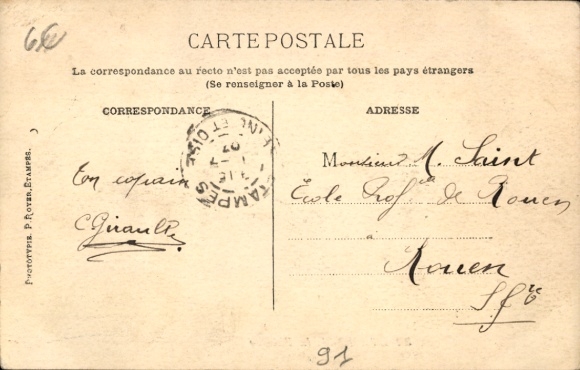 6€
CARTE POSTALE
La correspondance au recto n'est pas acceptée par tous les pays étrangers
(Se renseigner à la Poste)
CORRESPONDANCE
ADRESSE
ETAMPES
SEINE ET OISE
Ton copain
C Girault
Monsieur M. Saint
École Prof de Rouen
à
Rouen
S Inf re
PHOTOTYPIE. P. ROYER, ETAMPES.
91